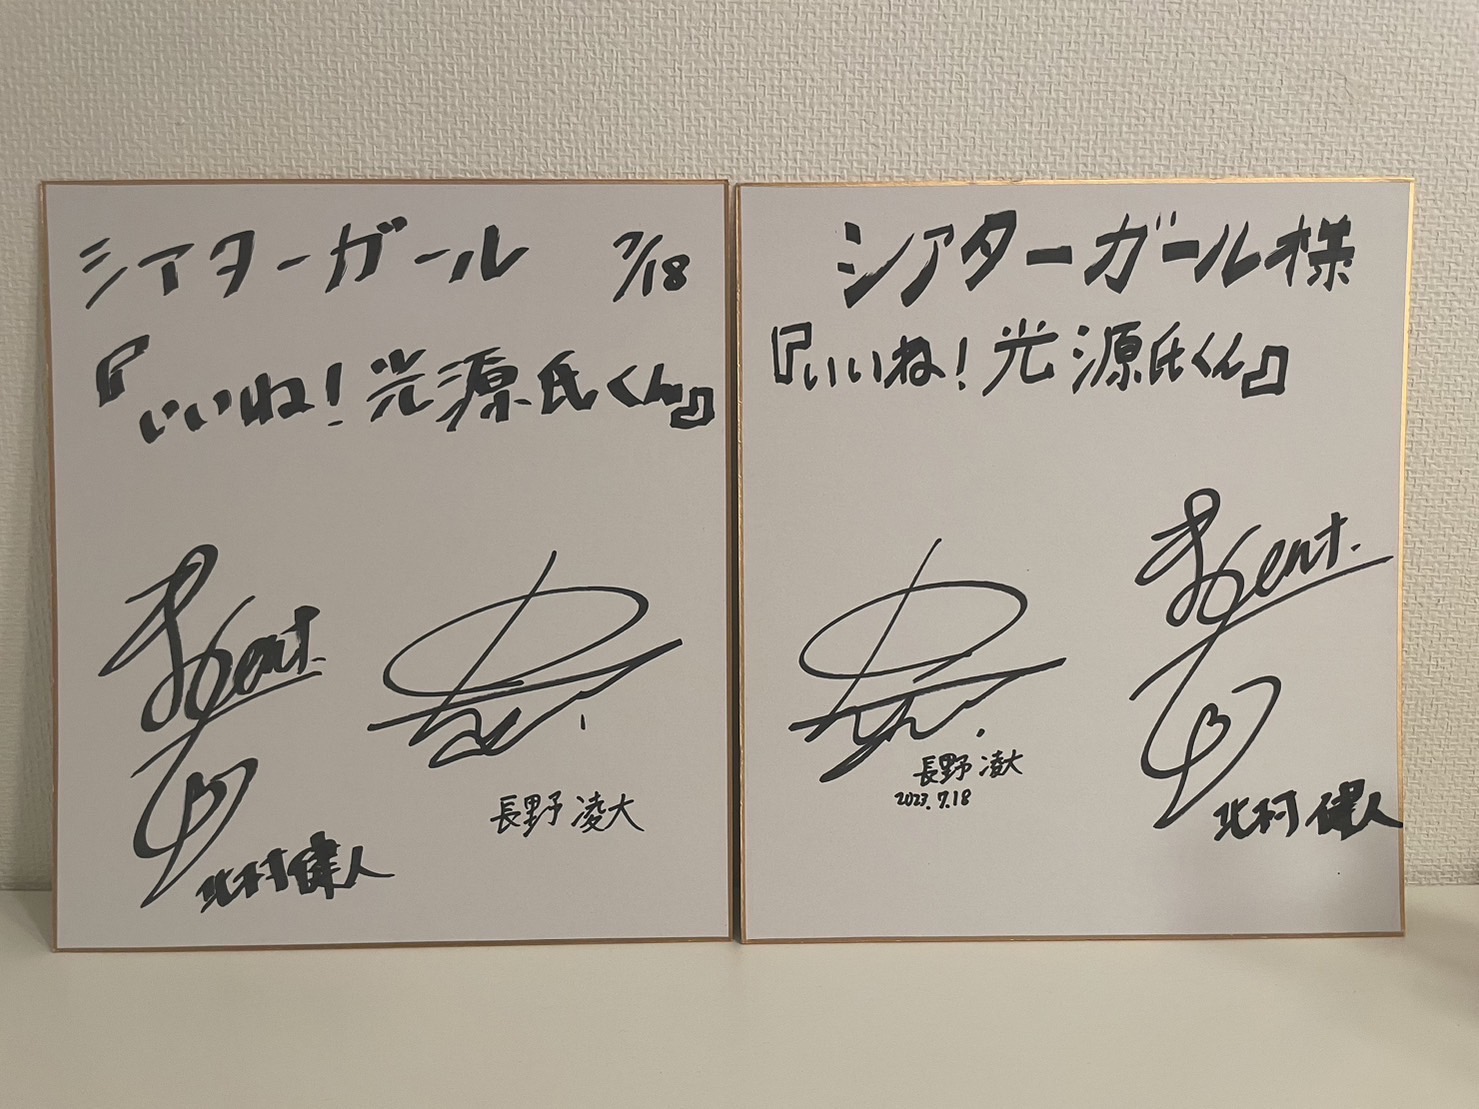 シアターガール 7/18
『いいね!光源氏くん』
Kent.
長野凌大
北村健人
シアターガール様
『いいね!光源氏くん』
Kent.
長野凌大
2023.7.18
北村健人